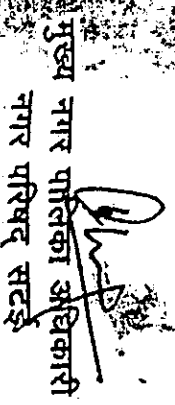 मुख्य नगर पालिका अधिकारी
नगर परिषद् सटई